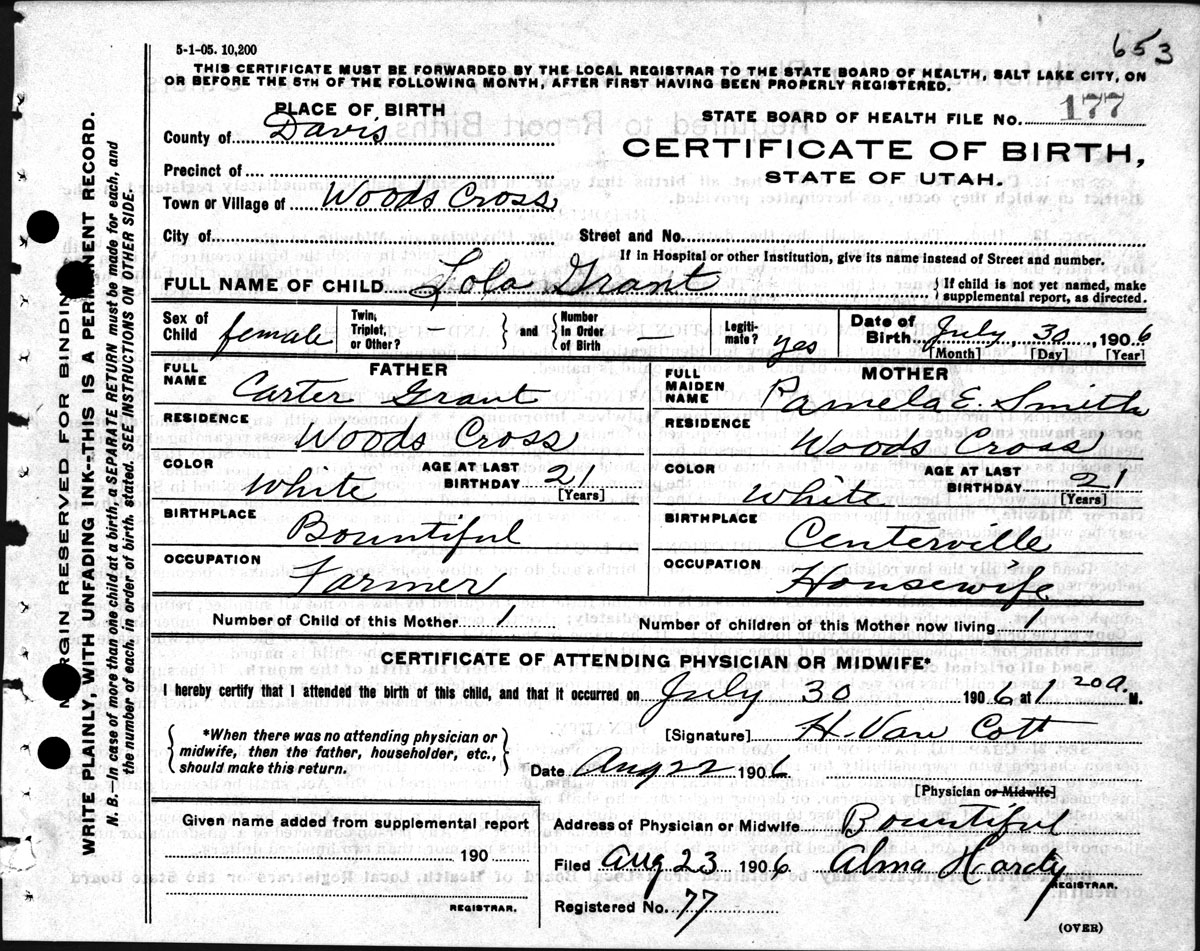 653
5-1-05. 10,200
THIS CERTIFICATE MUST BE FORWARDED BY THE LOCAL REGISTRAR TO THE STATE BOARD OF HEALTH, SALT LAKE CITY, ON
OR BEFORE THE 5TH OF THE FOLLOWING MONTH, AFTER FIRST HAVING BEEN PROPERLY REGISTERED.
PLACE OF BIRTH
STATE BOARD OF HEALTH FILE NO. 177
County of Davis
CERTIFICATE OF BIRTH,
Precinct of
STATE OF UTAH.
Town or Village of Woods Cross
City of Street and No.
If in Hospital or other Institution, give its name instead of Street and number.
FULL NAME OF CHILD Lola Grant { If child is not yet named, make supplemental report, as directed.
Sex of Child female Twin, Triplet, or Other? — } and { Number in Order of Birth — Legiti-mate? yes Date of Birth July, 30, 1906
[Month] [Day] [Year]
FATHER
MOTHER
FULL NAME Carter Grant
FULL MAIDEN NAME Pamela E. Smith
RESIDENCE Woods Cross
RESIDENCE Woods Cross
COLOR White AGE AT LAST BIRTHDAY 21 [Years]
COLOR White AGE AT LAST BIRTHDAY 21 [Years]
BIRTHPLACE Bountiful
BIRTHPLACE Centerville
OCCUPATION Farmer
OCCUPATION Housewife
Number of Child of this Mother 1 Number of children of this Mother now living 1
CERTIFICATE OF ATTENDING PHYSICIAN OR MIDWIFE*
I hereby certify that I attended the birth of this child, and that it occurred on July 30 1906 at 1 20 a. M.
{ *When there was no attending physician or
midwife, then the father, householder, etc.,
should make this return. }
[Signature] H. Van Cott
Date Aug 22 1906
[Physician or Midwife]
Given name added from supplemental report
190
REGISTRAR.
Address of Physician or Midwife Bountiful
Filed Aug 23 1906 Alma Hardy
REGISTRAR.
Registered No. 77
(OVER)
MARGIN RESERVED FOR BINDING
WRITE PLAINLY, WITH UNFADING INK--THIS IS A PERMANENT RECORD.
N. B. In case of more than one child at a birth, a SEPARATE RETURN must be made for each, and
the number of each, in order of birth, stated. SEE INSTRUCTIONS ON OTHER SIDE.